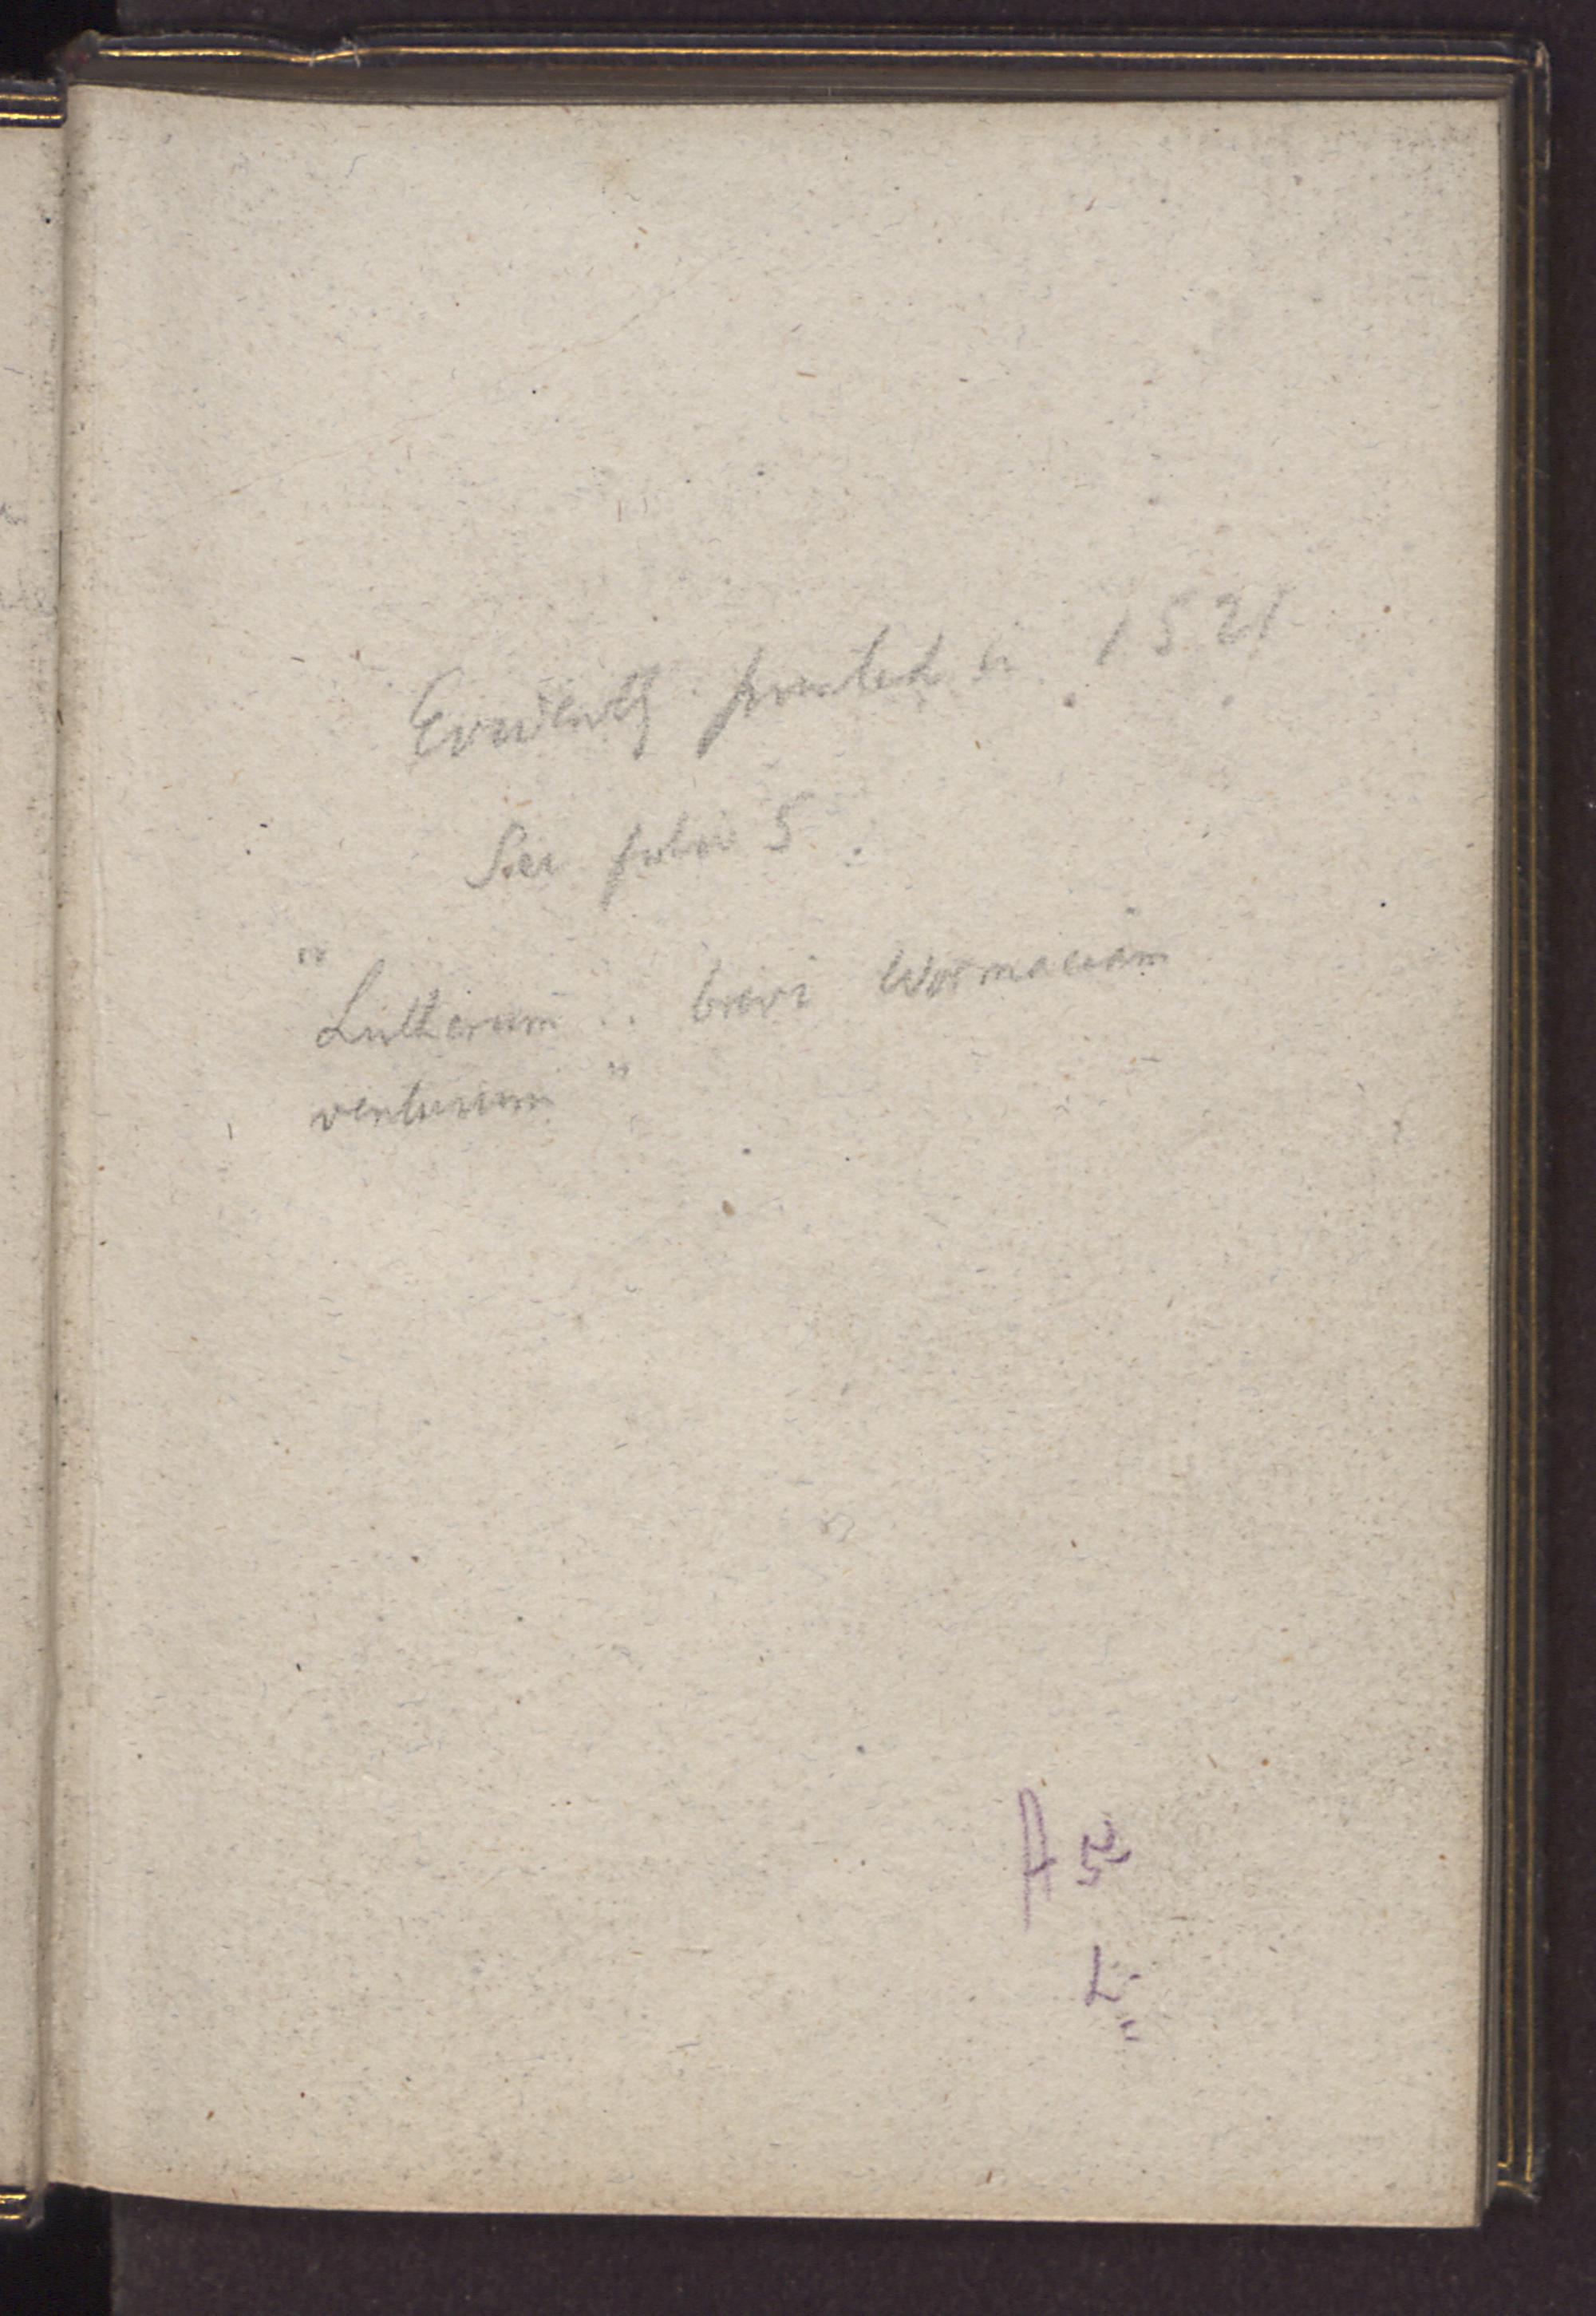 Evidently printed in 1521
See folio 5.
"Lutherum .. brevi Wormaciam
venturum"
A
L